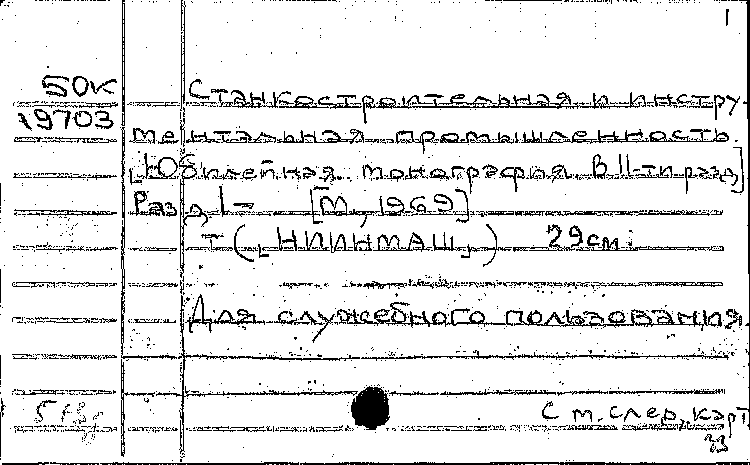 1
50к
19703
Станкостроительная и инстру-
ментальная промышленность.
[Юбилейная монография. В 11-ти разд.]
Разд. 1- [М., 1969]
т ([НИИНМАШ]) 29см.
Для служебного пользования.
См. след. карт
33